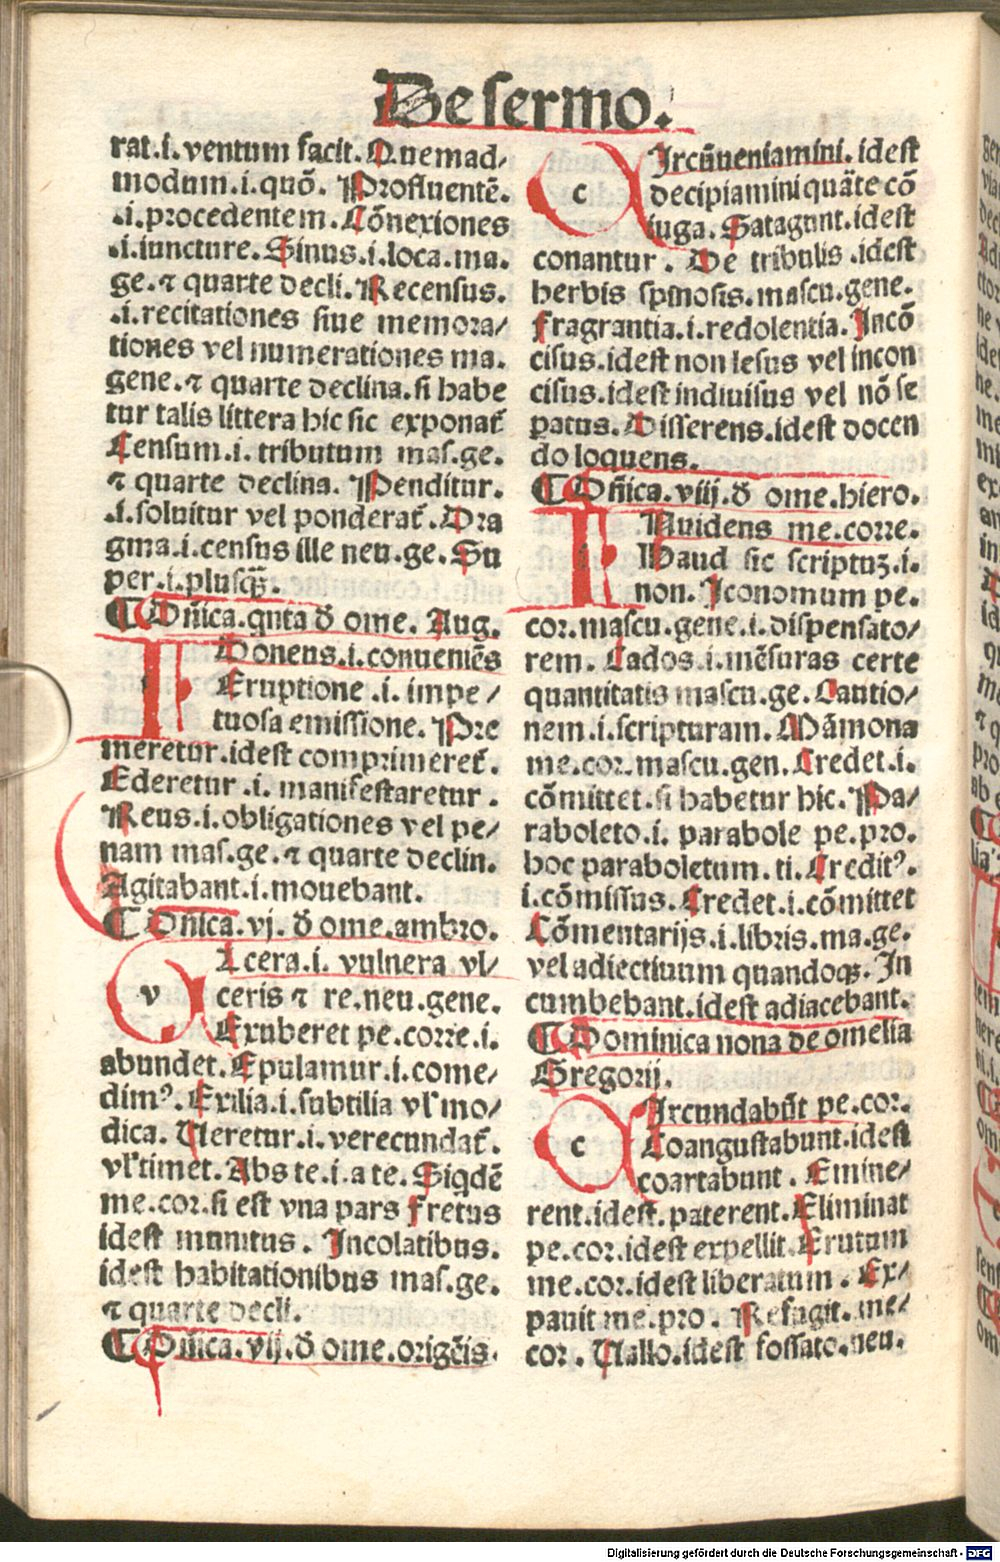 De sermo.
rat.i. ventum facit. Quemad/
modum.i. quō. Profluentē.
.i. procedentem. Cōnexiones
.i. iuncture. Sinus.i. loca. ma.
ge. ⁊ quarte decli. Recensus.
.i. recitationes siue memora/
tiones vel numerationes ma.
gene. ⁊ quarte declina. si habe
tur talis littera hic sic exponat̄
Censum.i. tributum mas.ge.
⁊ quarte declina. Penditur.
.i. soluitur vel ponderat̄. Dra
gma.i. census ille neu.ge. Su
per.i. plusq̄ꝫ.
¶ Dn̄ica. qnta d̄ ome. Aug.
IDoneus.i. conueniēs
Eruptione .i. impe/
tuosa emissione. Pre
meretur. idest comprimeret̄.
Ederetur .i. manifestaretur .
Reus.i. obligationes vel pe/
nam mas.ge. ⁊ quarte declin.
Agitabant.i. mouebant.
¶ Dn̄ica. vj. d̄ ome. ambro.
vLcera.i. vulnera vl/
ceris ⁊ re. neu. gene.
Exuberet pe. corre.i.
abundet. Epulamur.i. come/
dimꝰ. Exilia.i. subtilia vl̓ mo/
dica. Ueretur.i. verecundat̄.
vl̓ timet. Abs te.i. a te. Siqdē
me. cor. si est vna pars fretus
idest munitus. Incolatibus.
idest habitationibus mas.ge.
⁊ quarte decli.
¶ Dn̄ica. vij. d̄ ome. origēis.
cIrcūueniamini. idest
decipiamini quāte cō
iuga. Satagunt. idest
conantur . De tribulis .idest
herbis spinosis. mascu. gene.
fragrantia.i. redolentia. Incō
cisus. idest non lesus vel incon
cisus. idest indiuisus vel nō se
patus. Disserens. idest docen
do loquens.
¶ Dn̄ica. viij. d̄ ome. hiero.
INuidens me. corre.
Haud sic scriptuꝫ.i.
non. Iconomum pe.
cor. mascu. gene.i. dispensato/
rem. Cados.i. mēsuras certe
quantitatis mascu. ge. Cautio/
nem.i. scripturam. Māmona
me. cor. mascu. gen. Credet.i.
cōmittet. si habetur hic. Pa/
raboleto.i. parabole pe. pro.
hoc paraboletum. ti. Creditꝰ.
i. cōmissus. Credet.i. cōmittet
Cōmentarijs.i. libris. ma. ge.
vel adiectiuum quandoqꝫ. In
cumbebant. idest adiacebant.
¶ Dominica nona de omelia
Gregorij.
cIrcundabūt pe. cor.
Coangustabunt. idest
coartabunt . Emine/
rent. idest. paterent. Eliminat
pe. cor. idest expellit. Erutum
me. cor. idest liberatum . Ex/
pauit me. pro. Refugit. me/
cor . Uallo. idest fossato. neu.
Digitalisierung gefördert durch die Deutsche Forschungsgemeinschaft - DFG